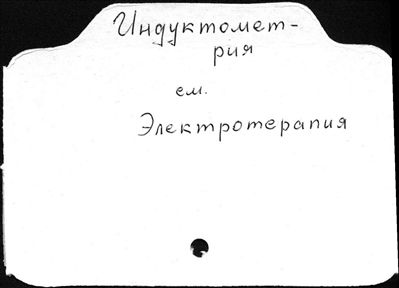 Индуктомет-
рия
см.
Электротерапия